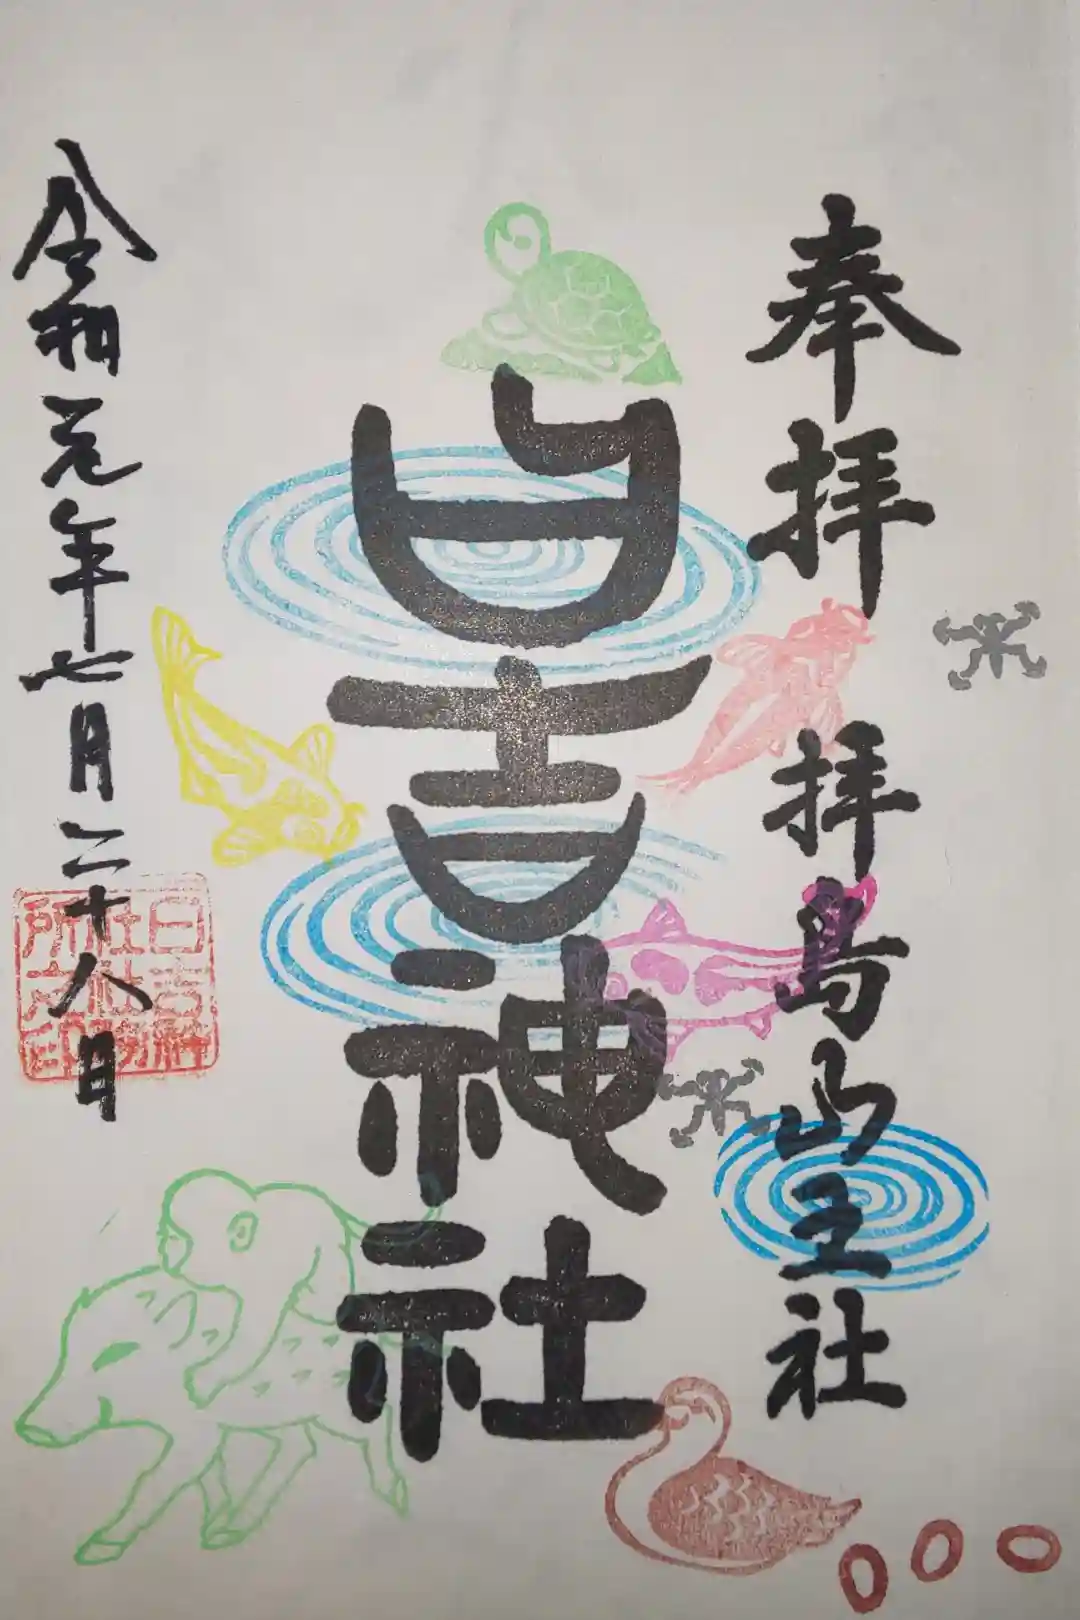 奉拝
拝島山王社
日吉神社
令和元年七月二十八日
日吉神
社社務
所之印